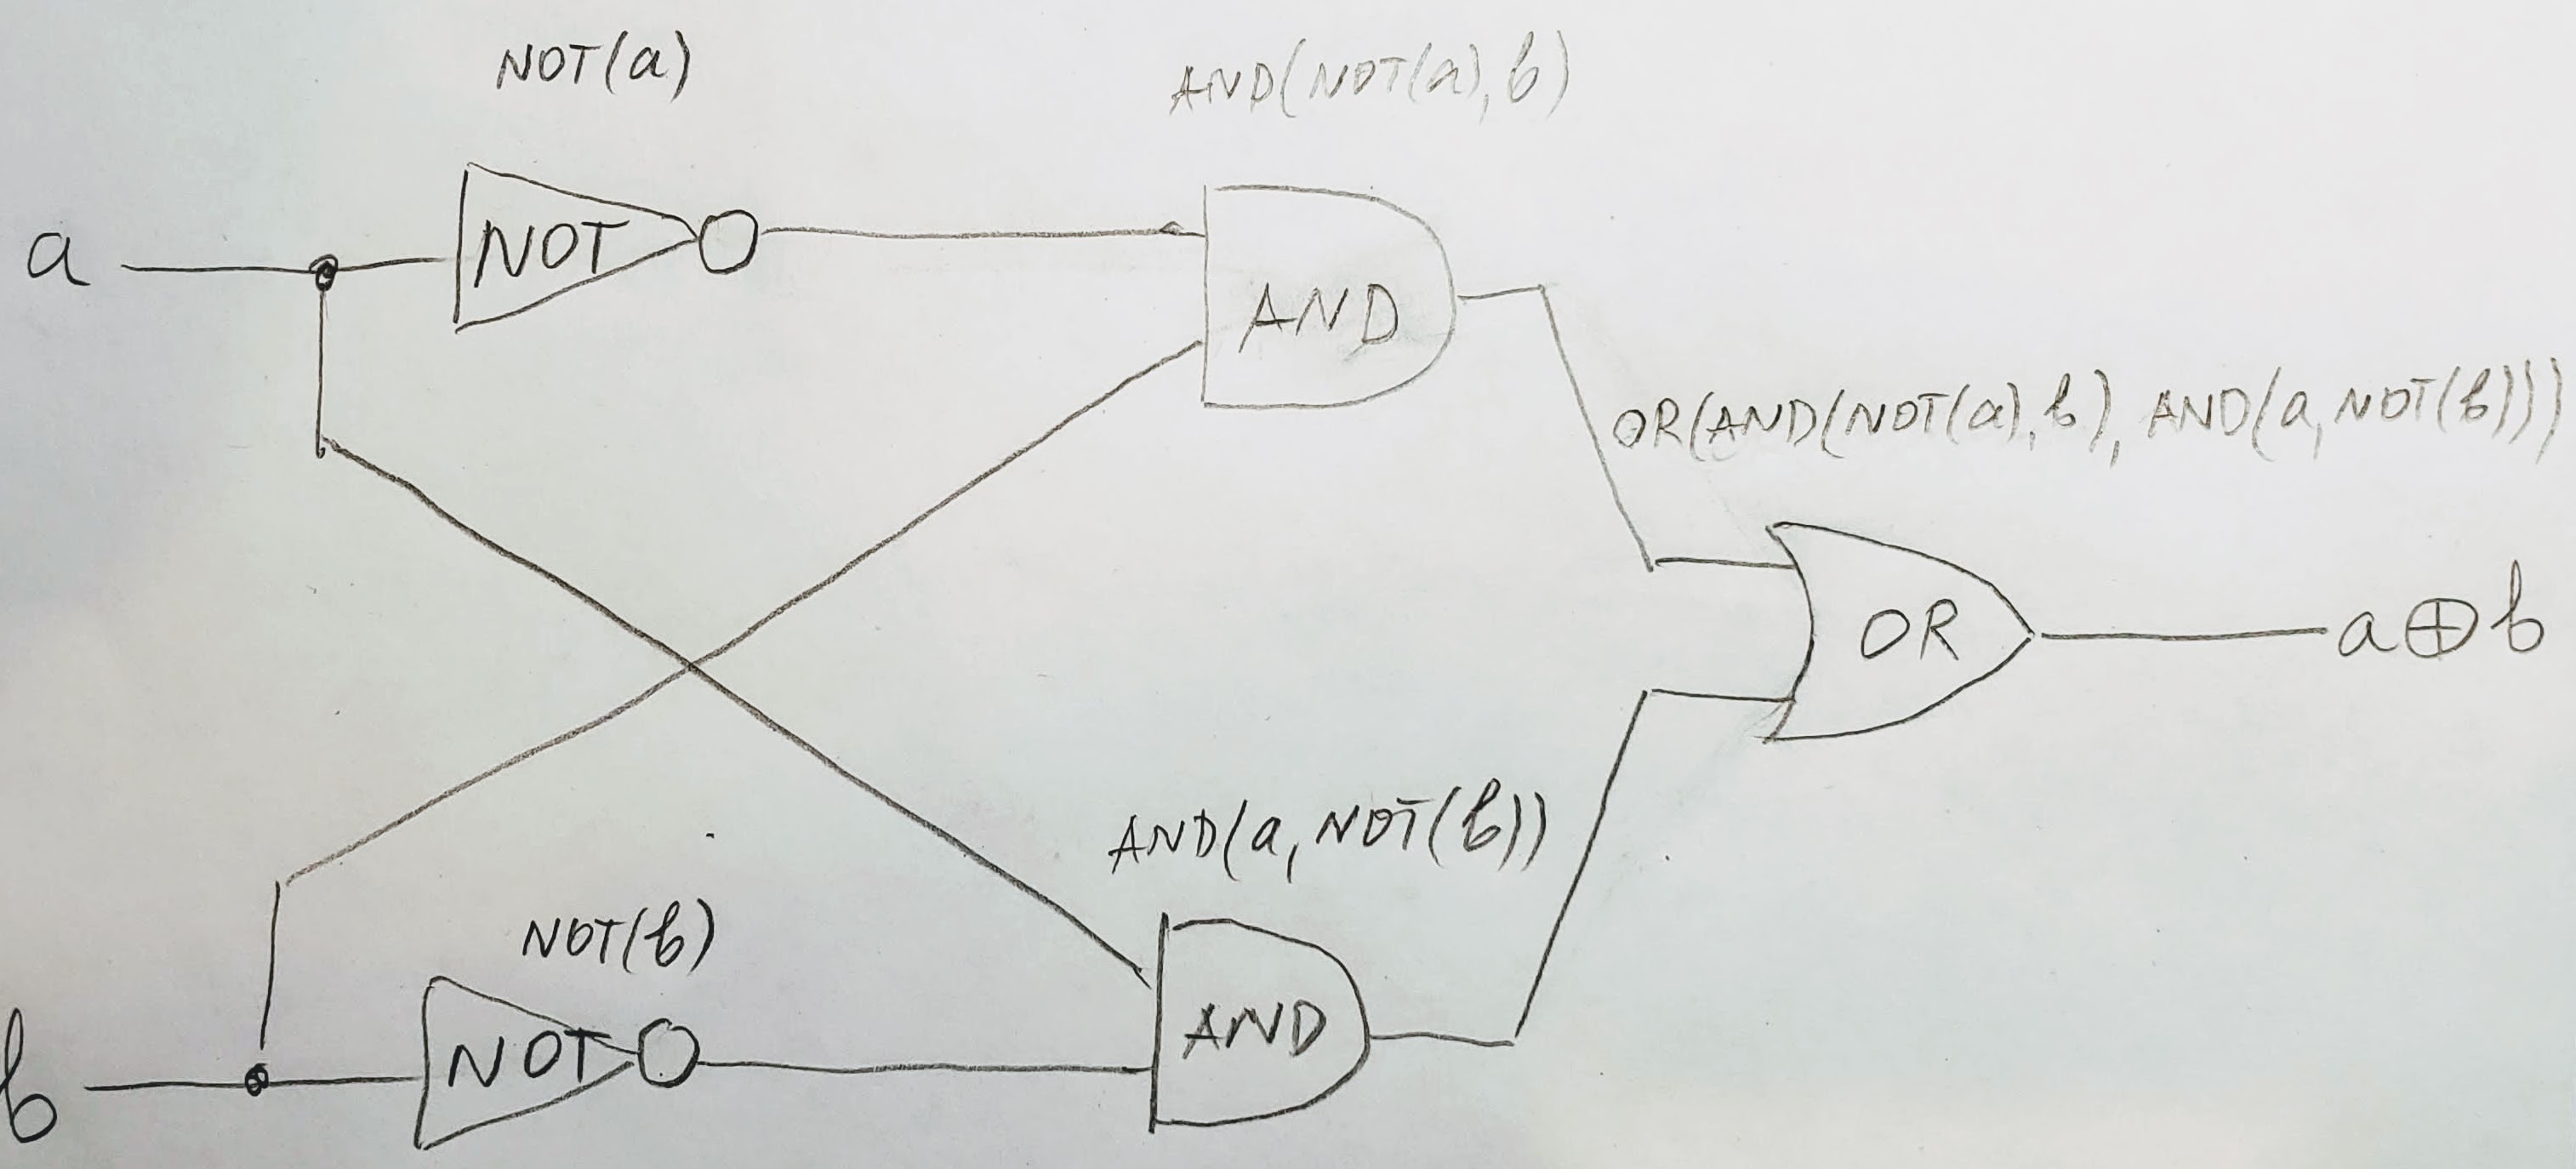 NOT(a)
AND(NOT(a), b)
a
NOT
AND
OR(AND(NOT(a), b), AND(a, NOT(b)))
OR
a⊕b
AND(a, NOT(b))
NOT(b)
b
NOT
AND